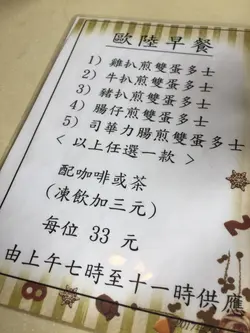 歐陸早餐
1) 雞扒煎雙蛋多士
2) 牛扒煎雙蛋多士
3) 豬扒煎雙蛋多士
4) 腸仔煎雙蛋多士
5) 司華力腸煎雙蛋多士
< 以上任選一款 >
配咖啡或茶
(凍飲加三元)
每位 33 元
由上午七時至十一時供應